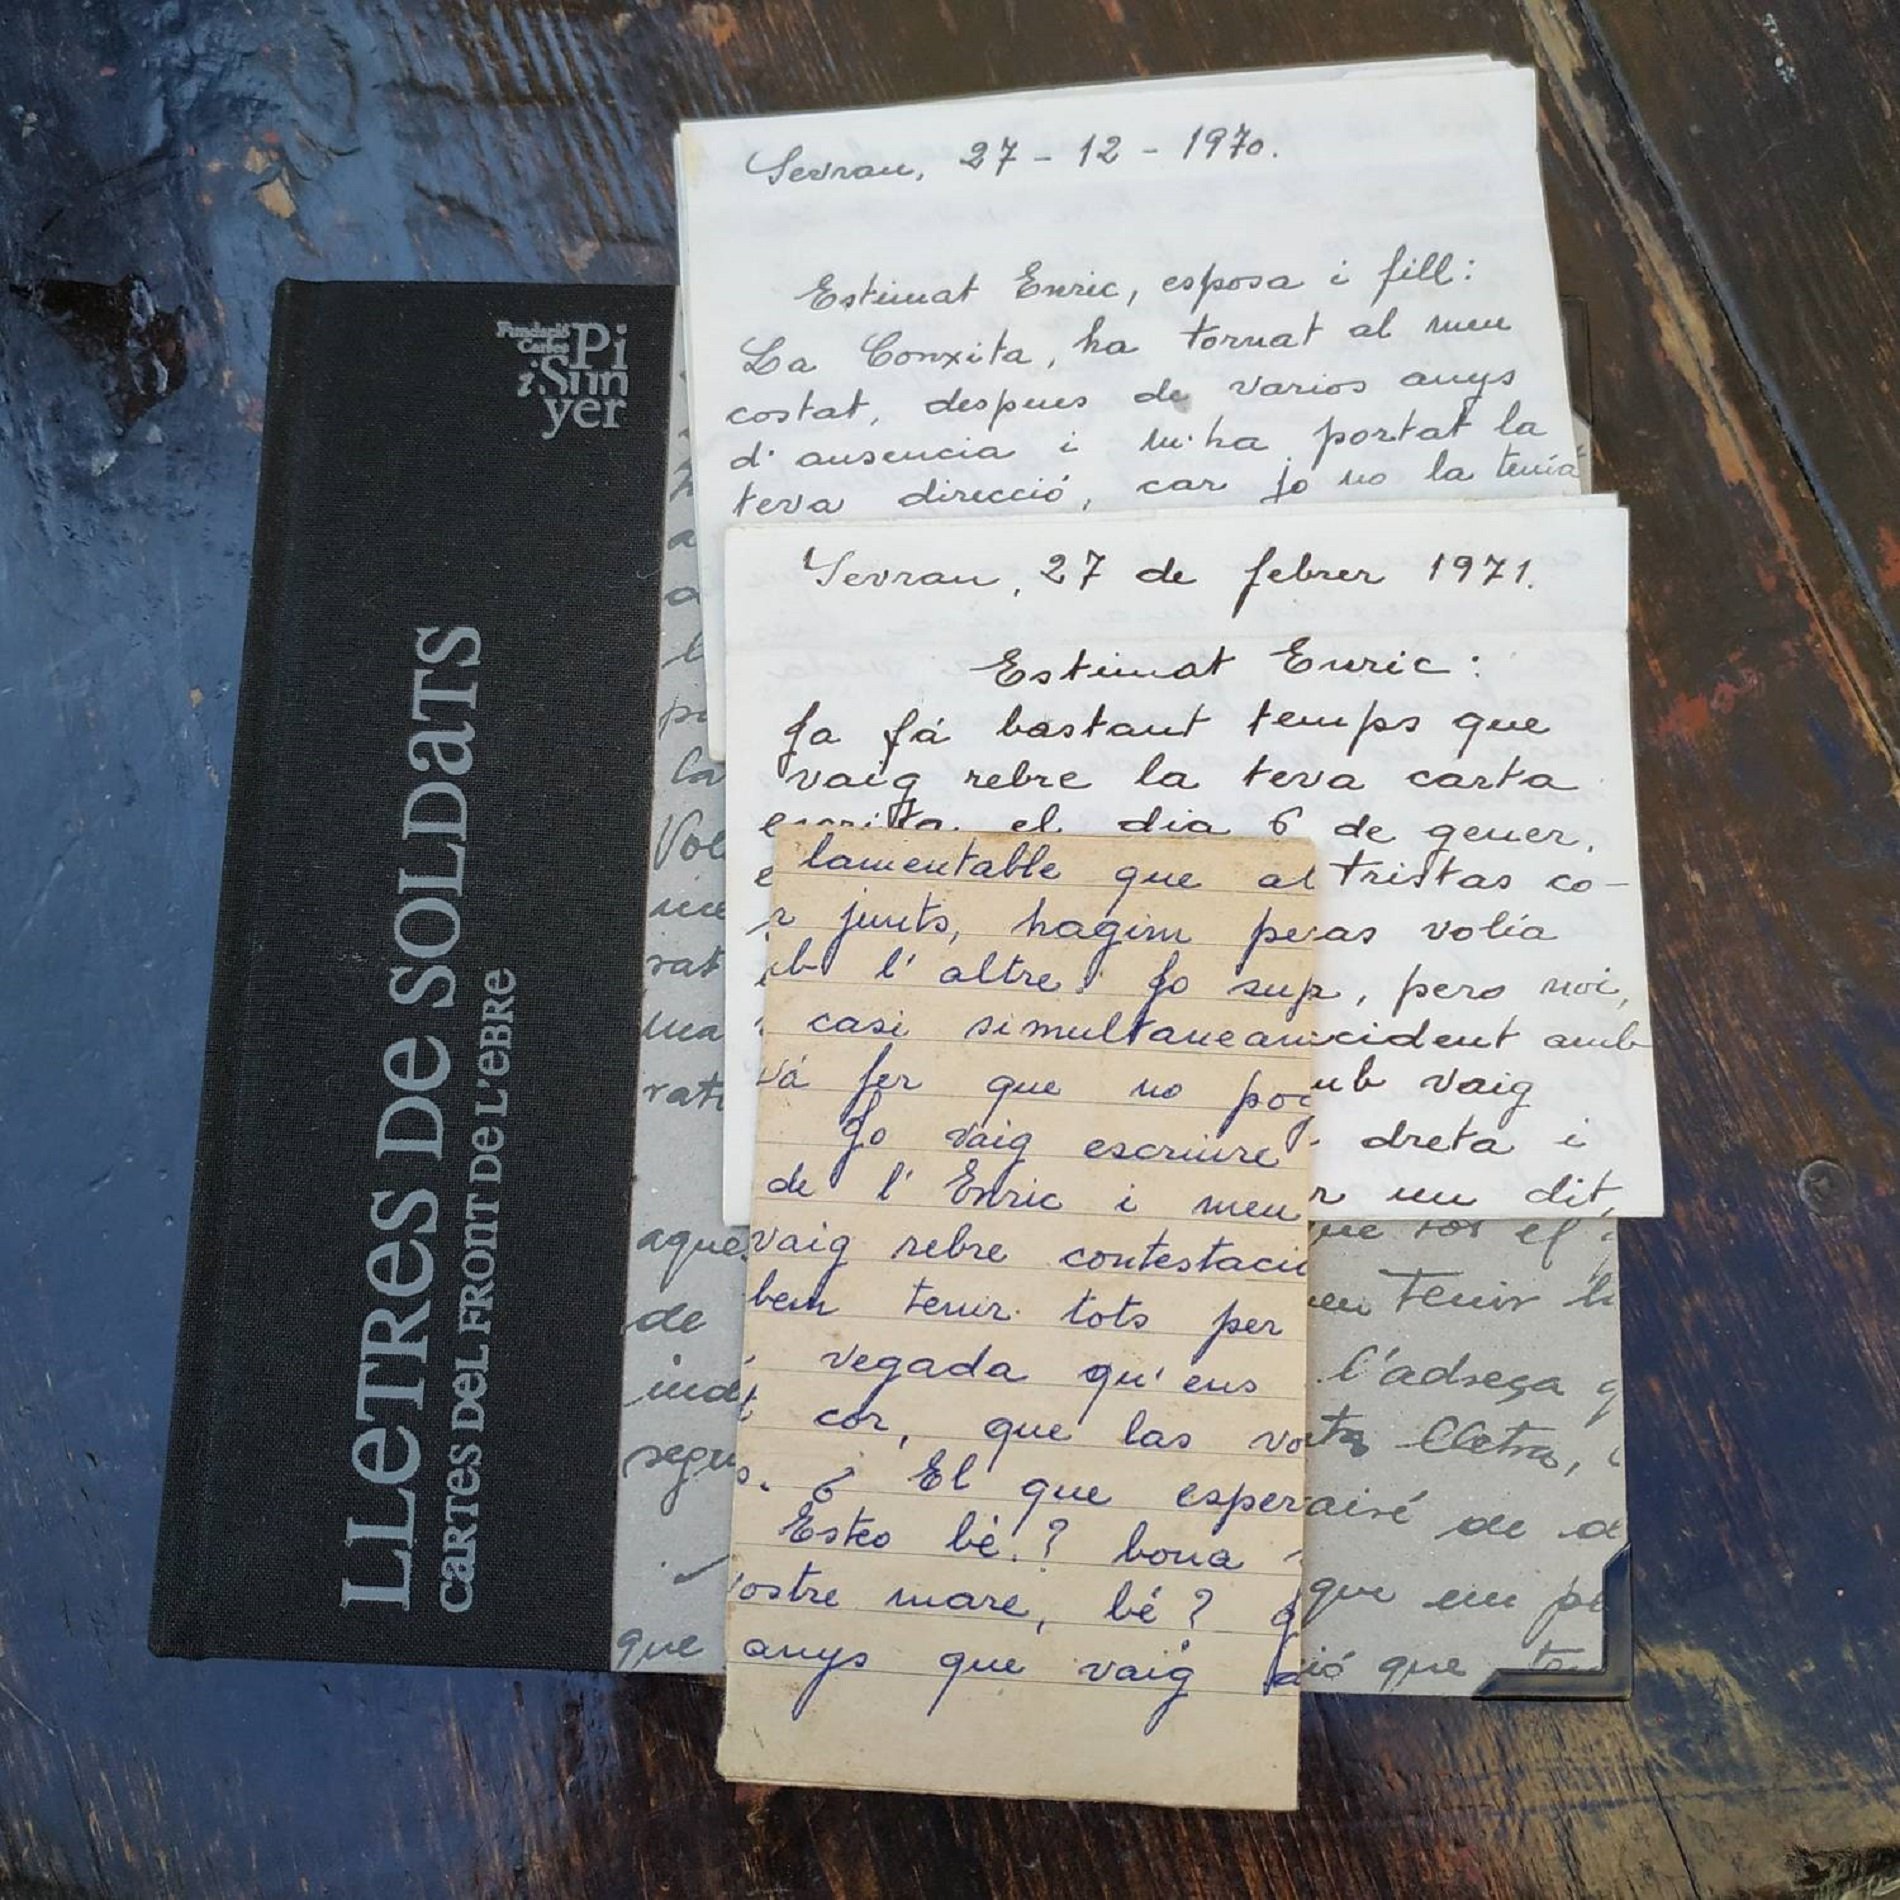 Fundació
Carles Pi
i Sun
yer
LLETRES DE SOLDATS
CARTES DEL FRONT DE L'EBRE
Sevran, 27 - 12 - 1970.
Estimat Enric, esposa i fill:
La Conxita, ha tornat al meu
costat, despues de varios anys
d'ausencia i m'ha portat la
teva direcció, car jo no la tenía
Sevran, 27 de febrer 1971.
Estimat Enric:
Ja fá bastant temps que
vaig rebre la teva carta
escrita el dia 6 de gener,
tristas co-
as volía
, pero noi,
cident amb
vaig
dreta i
un dit,
lamentable que al
junts, hagim
l'altre. Jo
casi simultanea
vá fer que no
Jo vaig escriure
de l'Enric i meu
vaig rebre contestaci
bem tenir tots per
vegada qu'ens
cor, que las
El que esper
Esteo bé? bona
vostre mare, bé?
anys que vaig
Vol
rat
aque
de
segu
que
tot el
tenir
l'adreça
lletra,
de
que em
ió que